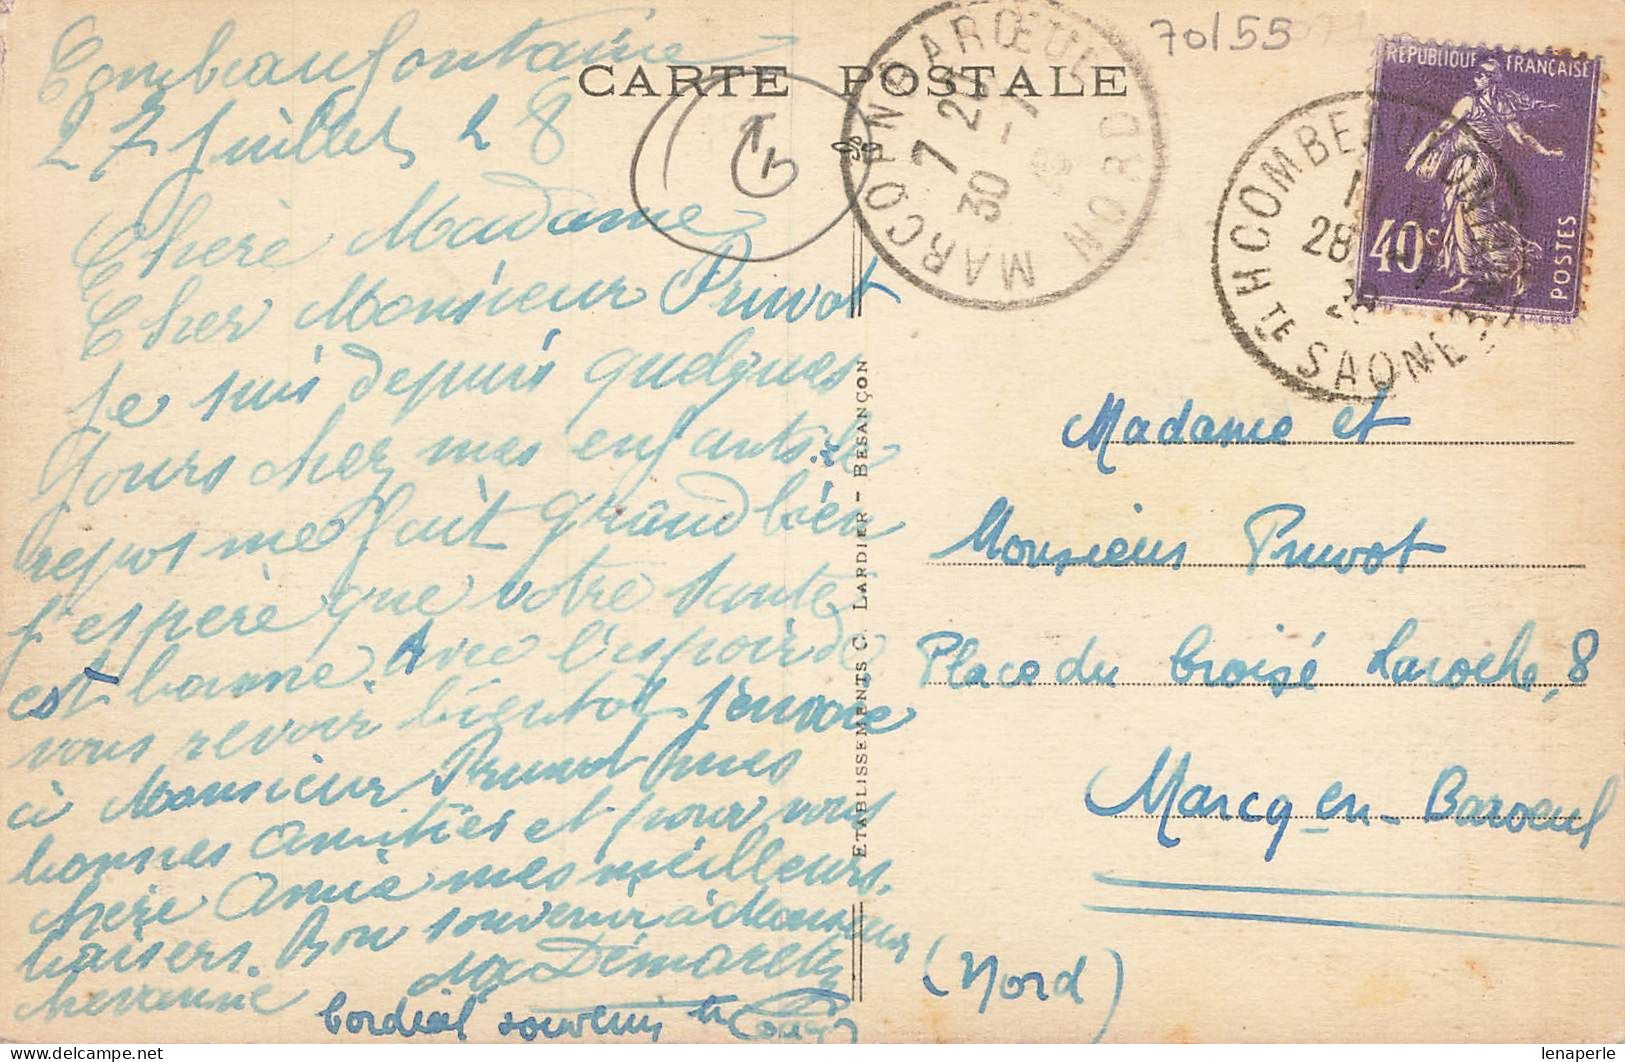 70/55
CARTE POSTALE
REPUBLIQUE FRANÇAISE
40c
POSTES
MARCQ EN BARŒUL NORD
7 2
30 -7
COMBEAUFONTAINE
Hte SAONE
28
Combeaufontaine
27 juillet 28
Chère Madame
Cher Monsieur Pruvot
Je suis depuis quelques
jours chez mes enfants. le
repos me fait grand bien
j'espère que votre santé
est bonne. Avec l'espoir de
vous revoir bientôt j'envoie
à Monsieur Pruvot mes
bonnes amitiés et pour vous
chère Amie mes meilleurs
baisers. Bon souvenir à
Demaretz
Cordial souvenir
ETABLISSEMENTS C. LARDIER - BESANÇON
Madame et
Monsieur Pruvot
Place du Croisé Laroche, 8
Marcq-en-Baroeul
(Nord)
lenaperle